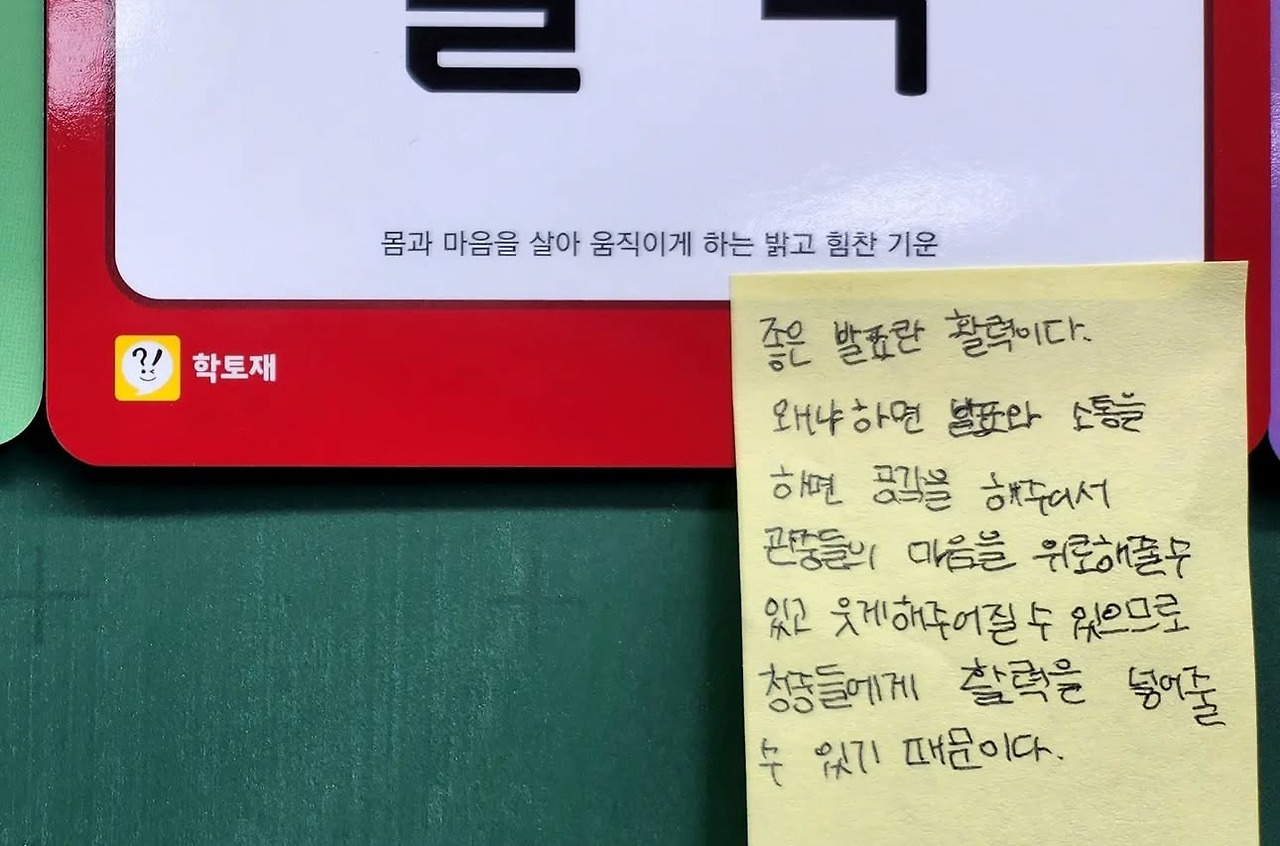 몸과 마음을 살아 움직이게 하는 밝고 힘찬 기운
?!
학토재
좋은 발표란 활력이다.
왜냐하면 발표와 소통을
하면 공감을 해주어서
관중들의 마음을 위로해줄수
있고 웃게해주어질 수 있으므로
청중들에게 활력을 넣어줄
수 있기 때문이다.